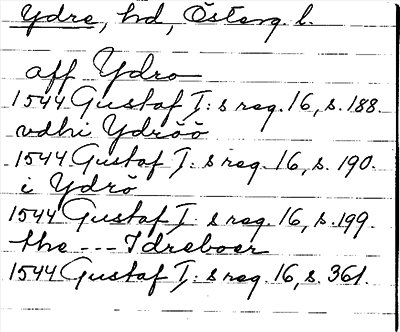 Ydre, hd, Österg. l.
aff Ydro
1544 Gustaf I:s reg. 16, s. 188.
vdhi Ydröö
1544 Gustaf I:s reg. 16, s. 190.
i Ydrö
1544 Gustaf I:s reg. 16, s. 199.
the --- Idreboer
1544 Gustaf I:s reg. 16, s. 361.